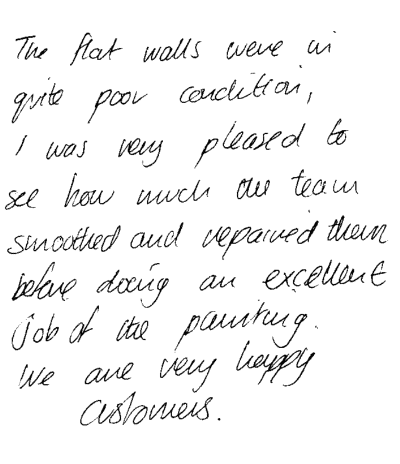 The flat walls were in
quite poor condition,
I was very pleased to
see how much the team
smoothed and repaired them
before doing an excellent
job of the painting.
We are very happy
customers.